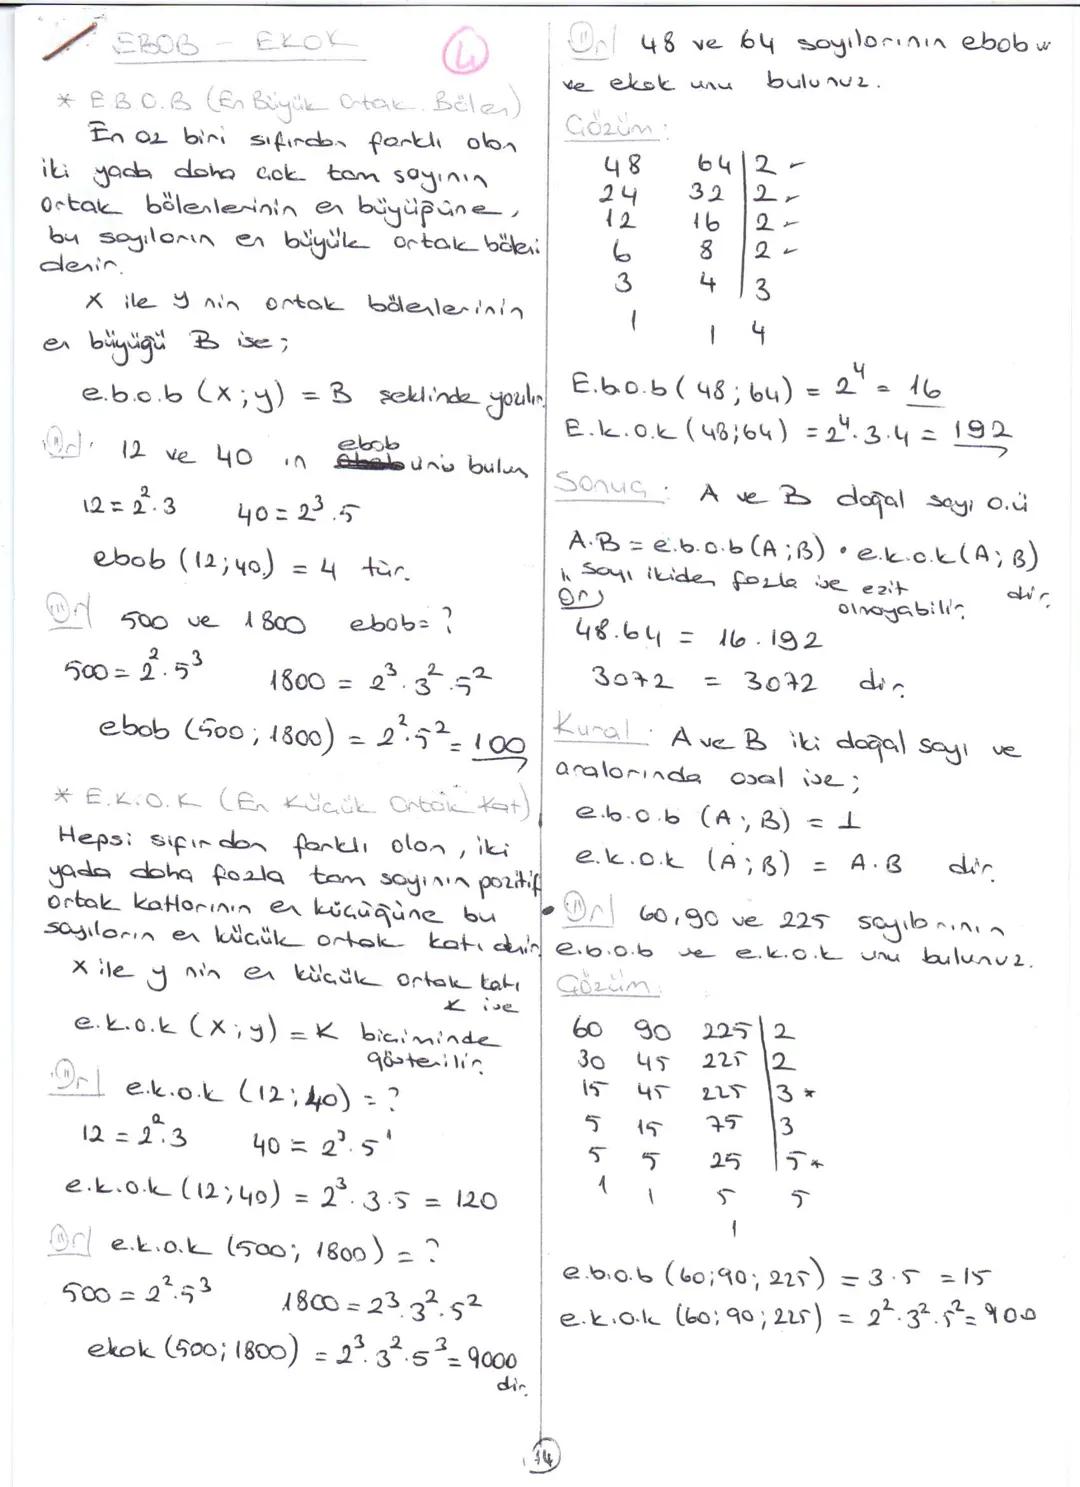 EBOB - EKOK
4
* E.B.O.B (En Büyük Ortak Bölen)
En az biri sıfırdan farklı olan
iki yada daha çok tam sayının
ortak bölenlerinin en büyüğüne,
bu sayıların en büyük ortak böleni
denir.
x ile y nin ortak bölenlerinin
en büyüğü B ise;
e.b.o.b (x;y) = B şeklinde yazılır.
Ör/ 12 ve 40 ın ebob unu bulun
12 = 2².3 40 = 2³.5
ebob (12;40) = 4 tür.
Ör/ 500 ve 1800 ebob = ?
500 = 2².5³ 1800 = 2³.3².5²
ebob (500; 1800) = 2².5² = 100
* E.K.O.K (En Küçük Ortak Kat)
Hepsi sıfırdan farklı olan, iki
yada daha fazla tam sayının pozitif
ortak katlarının en küçüğüne bu
sayıların en küçük ortak katı denir
x ile y nin en küçük ortak katı
K ise
e.k.o.k (x;y) = K biçiminde
gösterilir.
Ör/ e.k.o.k (12;40) = ?
12 = 2².3 40 = 2³.5¹
e.k.o.k (12;40) = 2³.3.5 = 120
Ör/ e.k.o.k (500; 1800) = ?
500 = 2².5³ 1800 = 2³.3².5²
ekok (500; 1800) = 2³.3².5³ = 9000
dir.
Ör/ 48 ve 64 sayılarının ebob u
ve ekok unu bulunuz.
Çözüm:
48 64 | 2
24 32 | 2
12 16 | 2
6 8 | 2
3 4 | 3
1 1 4
E.b.o.b (48;64) = 2⁴ = 16
E.k.o.k (48;64) = 2⁴.3.4 = 192
Sonuç: A ve B doğal sayı o.ü
A.B = e.b.o.b (A;B) . e.k.o.k (A;B)
dir.
sayı ikiden fazla ise eşit
olmayabilir.
Ör/
48.64 = 16.192
3072 = 3072 dir.
Kural: A ve B iki doğal sayı ve
aralarında asal ise;
e.b.o.b (A;B) = 1
e.k.o.k (A;B) = A.B dir.
Ör/ 60,90 ve 225 sayılarının
e.b.o.b ve e.k.o.k unu bulunuz.
Çözüm:
60 90 225 | 2
30 45 225 | 2
15 45 225 | 3 *
5 15 75 | 3
5 5 25 | 5 *
1 1 5 5
1
e.b.o.b (60;90; 225) = 3.5 = 15
e.k.o.k (60;90;225) = 2².3².5² = 900
14